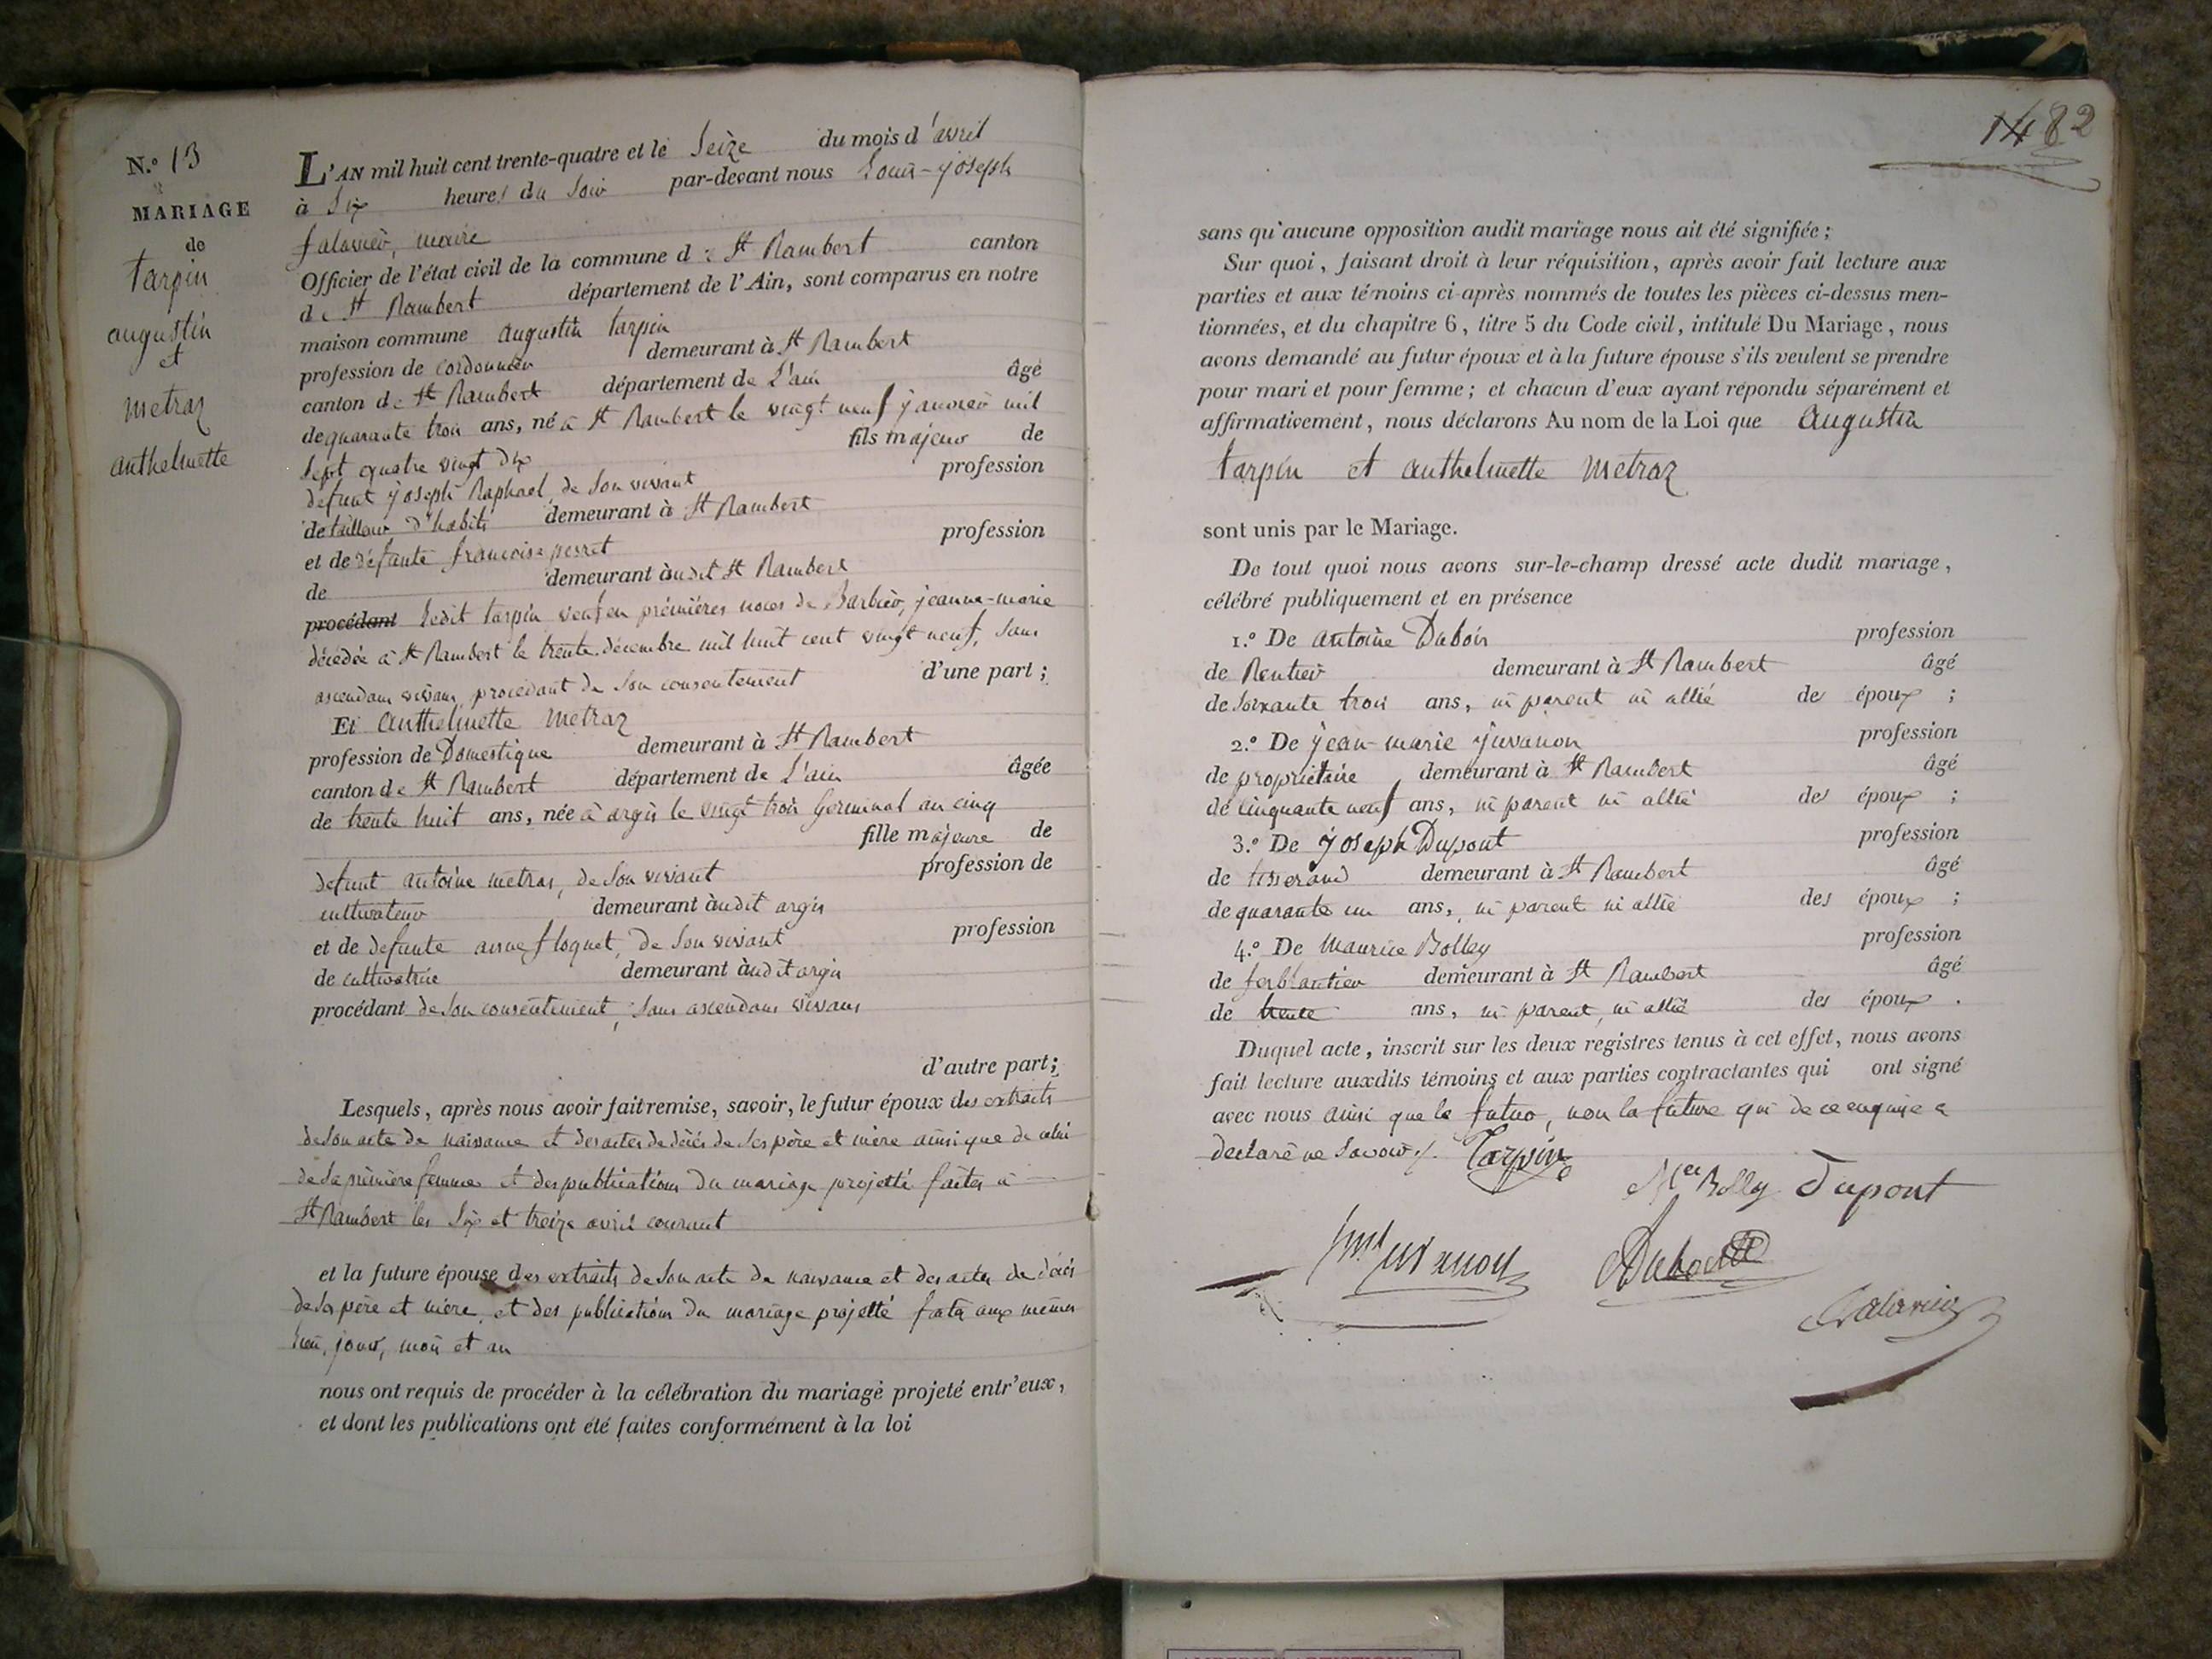 N.º 13
MARIAGE
de
tarpin
augustin
et
metraz
anthelmette
L'AN mil huit cent trente-quatre et le Seize du mois d'avril
à Six heures du Soir par-devant nous Louis-joseph
falavier, maire
Officier de l'état civil de la commune de St Rambert canton
de St Rambert département de l'Ain, sont comparus en notre
maison commune augustin tarpin
profession de cordonnier demeurant à St Rambert
canton de St Rambert département de L'ain âgé
de quarante trois ans, né à St Rambert le vingt neuf janvier mil
Sept quatre vingt dix fils majeur de
defunt joseph Raphael, de Son vivant profession
de tailleur d'habits demeurant à St Rambert
et de défante francoise perret profession
de demeurant àudit St Rambert
procédant Ledit tarpin veuf en prémiéres noces de Barbier, jeanne-marie
décédée à St Rambert le trente décembre mil huit cent vingt neuf, Sans
ascendans vivans, procedant de Son consentement d'une part ;
Et anthelmette metraz
profession de Domestique demeurant à St Rambert
canton de St Rambert département de L'ain âgée
de trente huit ans, née à argis le vingt trois Germinal an cinq
fille majeure de
defunt antoine metras, de Son vivant profession de
cultivateur demeurant àudit argis
et de defunte anne floquet, de Son vivant profession
de cultivatrice demeurant àudit argis
procédant de Son consentement, Sans ascendans vivans
d'autre part ;
Lesquels, après nous avoir fait remise, savoir, le futur époux des extraits
de Son acte de naissance et des actes de décés de Ses père et mère ainsi que de celui
de Sa prémière femme et des publications du mariage projetté faites à
St Rambert les Six et treize avril courant
et la future épouse des extraits de Son acte de naissance et des actes de décés
de Ses père et mère, et des publications du mariage projetté faites aux mêmes
lieu, jour, mois et an
nous ont requis de procéder à la célébration du mariage projeté entr'eux,
et dont les publications ont été faites conformément à la loi
82
sans qu'aucune opposition audit mariage nous ait été signifiée ;
Sur quoi, faisant droit à leur réquisition, après avoir fait lecture aux
parties et aux témoins ci-après nommés de toutes les pièces ci-dessus men-
tionnées, et du chapitre 6, titre 5 du Code civil, intitulé Du Mariage, nous
avons demandé au futur époux et à la future épouse s'ils veulent se prendre
pour mari et pour femme ; et chacun d'eux ayant répondu séparément et
affirmativement, nous déclarons Au nom de la Loi que augustin
tarpin et anthelmette metraz
sont unis par le Mariage.
De tout quoi nous avons sur-le-champ dressé acte dudit mariage,
célébré publiquement et en présence
1.º De antoine Dubois profession
de Rentier demeurant à St Rambert âgé
de Soixante trois ans, ni parent ni allié des époux ;
2.º De jean-marie juvanon profession
de propriétaire demeurant à St Rambert âgé
de cinquante neuf ans, ni parent ni allié des époux ;
3.º De joseph Dupont profession
de tisserand demeurant à St Rambert âgé
de quarante un ans, ni parent ni allié des époux ;
4.º De maurice Bolley profession
de ferblantier demeurant à St Rambert âgé
de trente ans, ni parent, ni allié des époux .
Duquel acte, inscrit sur les deux registres tenus à cet effet, nous avons
fait lecture auxdits témoins et aux parties contractantes qui ont signé
avec nous ainsi que le futur, non la future qui de ce enquise a
declaré ne Savoir ./. Tarpin
Bolley Dupont
juvanon Dubois
falavier